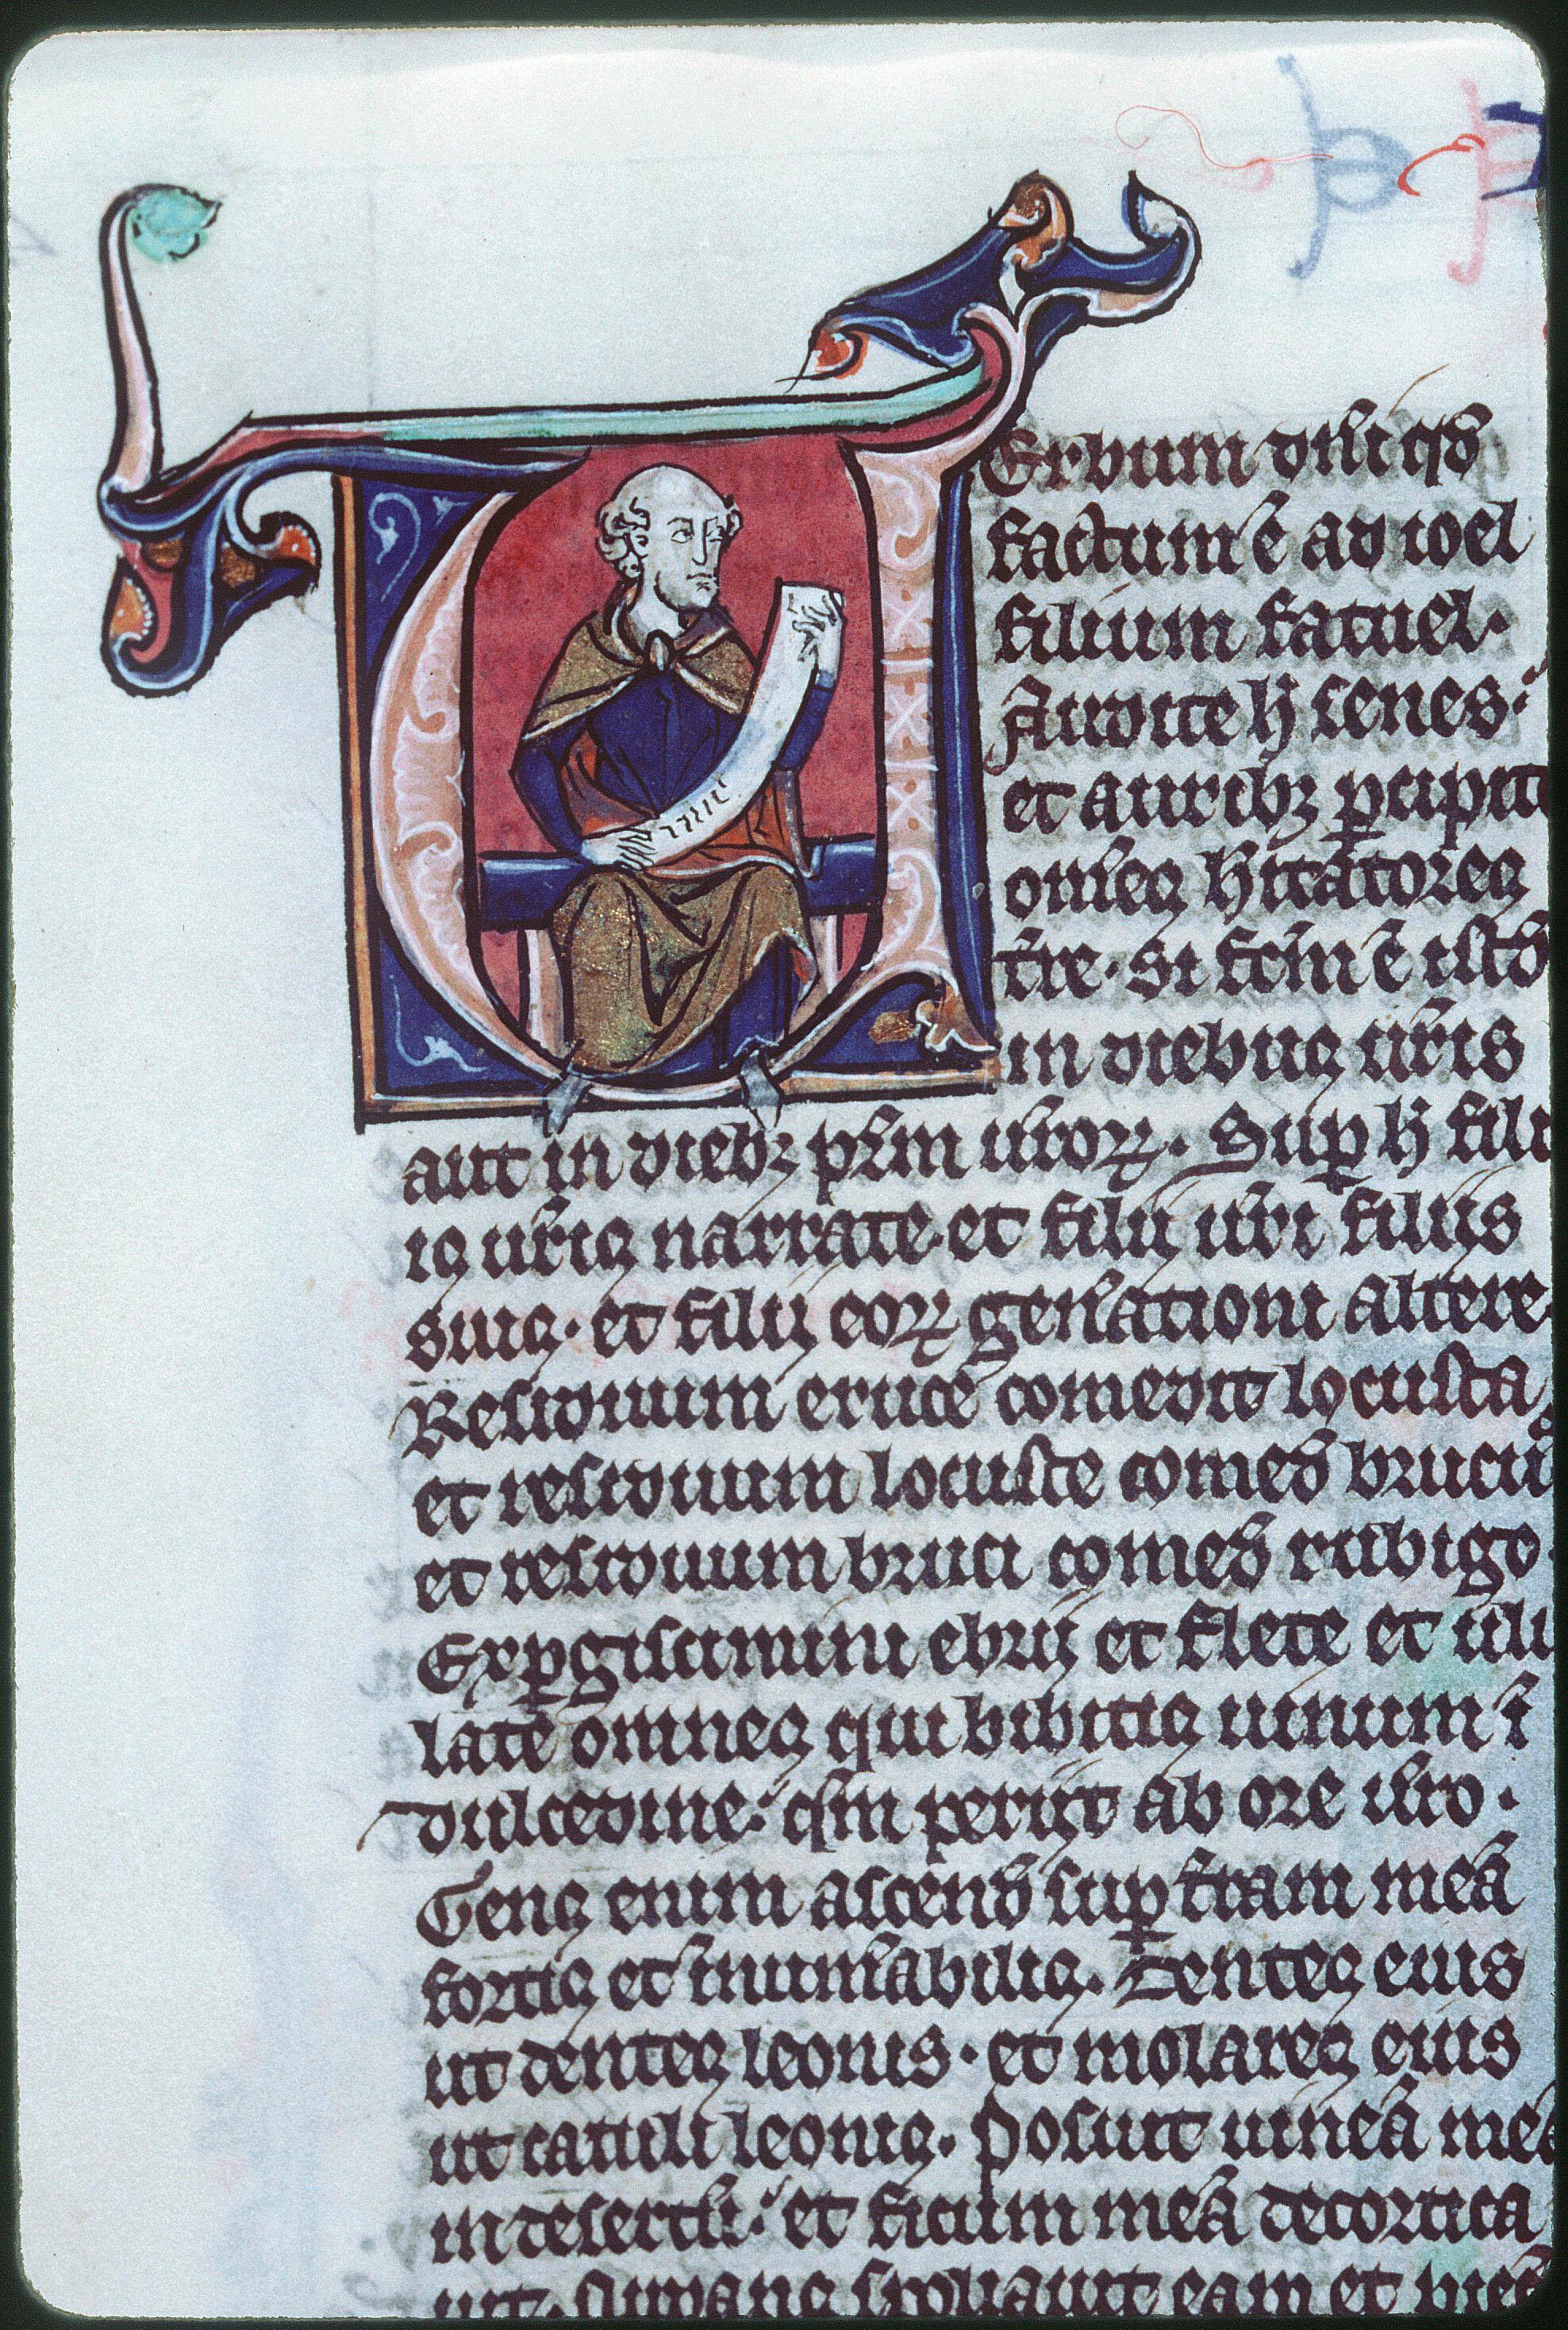 Erbum dñi qd̄
factum ē ad ioel
filium fatuel.
Audite h̄ senes.
et aurib; ꝑcipit
om̄es h̄itatores
t̄re. Si fc̄m ē istd̄
in diebus ur̄is
aut in dieb; pr̄m ur̄oꝝ. Suꝑ h̄ fili
is ur̄is narrate. et filij ur̄i filijs
suis. et filij eoꝝ gen̄ationi altere.
Residuum eruce comedit locusta
et residuum locuste comed̄ brucu
et residuum bruci comed̄ rubigo.
Exꝑgiscimini ebrij et flete et ulu
late omnes qui bibitis uinum ī
dulcedine. qm̄ perijt ab ore ur̄o.
Gens enim ascend̄ suꝑ t̄ram meā
fortis et īnum̄abilis. Dentes eius
ut dentes leonis. et molares eius
ut catuli leonis. Posuit uineā meā
in desertū. et ficum meā decortica
uit. spoliauit eam et